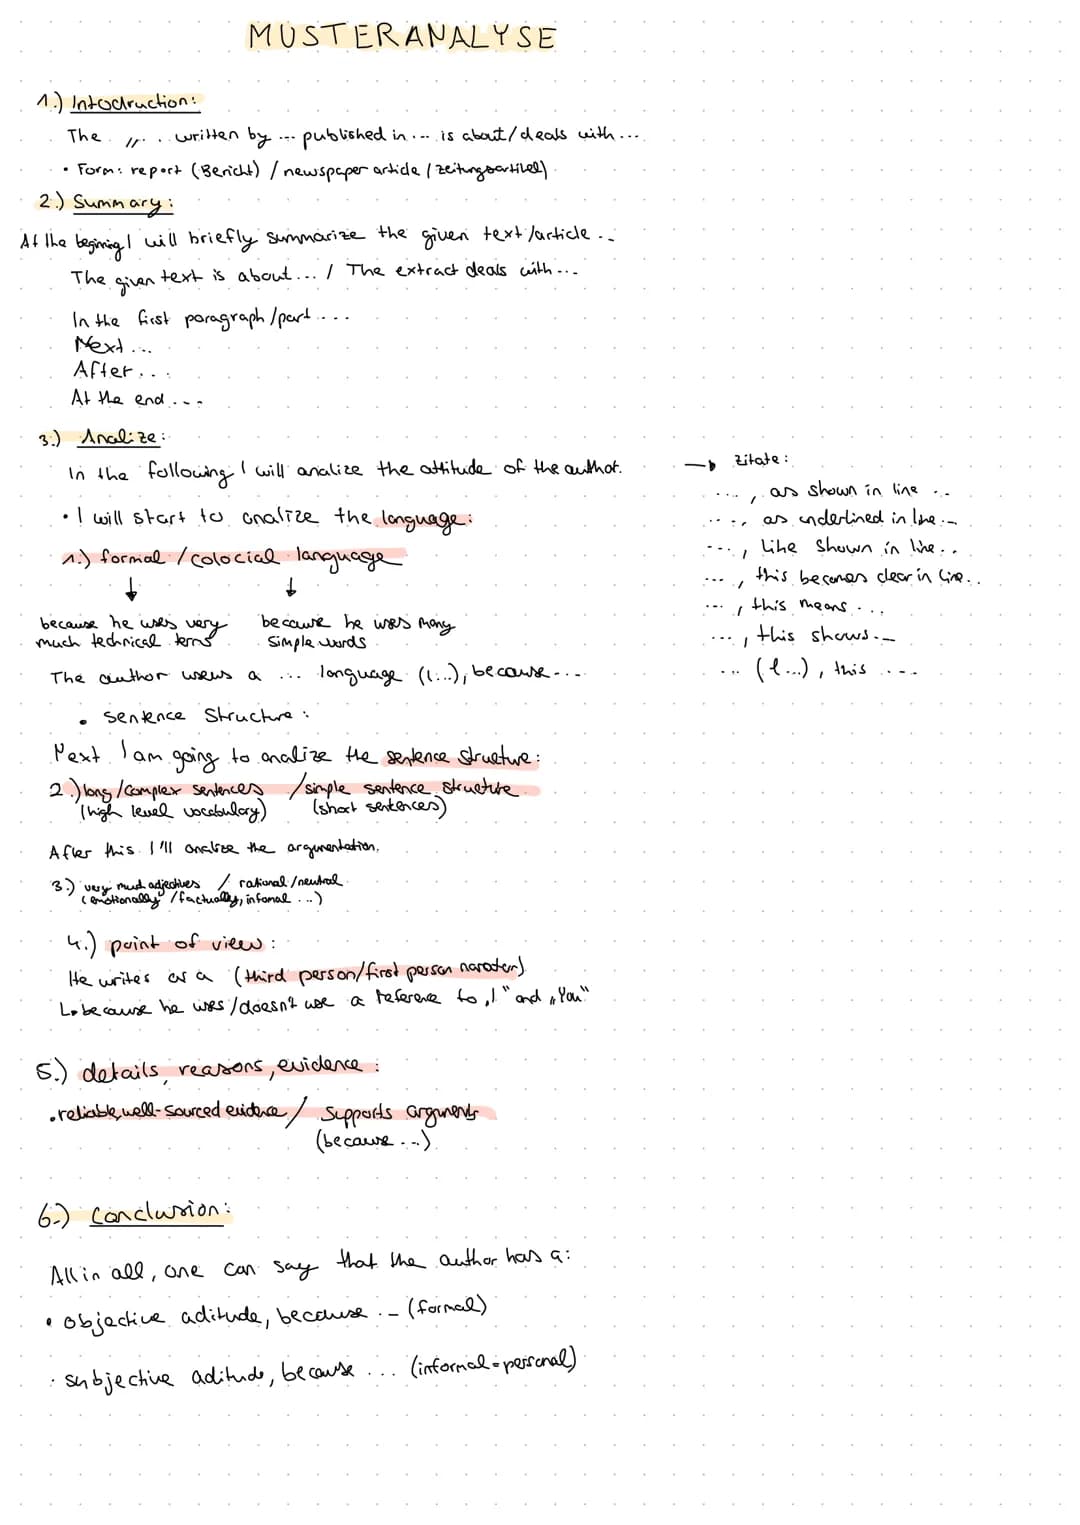 MUSTERANALYSE
1.) Intodruction:
The „... written by ... published in ... is about/deals with ...
• Form: report (Bericht) / newspaper article (zeitungsartikel)
2.) Summary:
At the begining I will briefly summarize the given text/article ..
The given text is about... / The extract deals with ...
In the first paragraph/part ...
Next ...
After ...
At the end ...
3.) Analize:
In the following I will analize the attitude of the author.
• I will start to analize the language:
1.) formal / colocial language
because he uses very much technical terms
because he uses many simple words
The author uses a ... language (l...), because ...
• Sentence Structure:
Next I am going to analize the sentence structure:
2.) long/complex sentences / simple sentence structure
(high level vocabulary) (short sentences)
After this I'll analize the argumentation.
3.) very much adjectives / rational/neutral
(emotionally / factually, informal ...)
4.) point of view:
He writes as a (third person/first person narator)
↳ because he uses/doesn't use a reference to „I" and „You"
5.) details, reasons, evidence:
• reliable, well-sourced evidence / supports arguments
(because ...)
6.) Conclusion:
All in all, one can say that the author has a:
• objective aditude, because ... (formal)
• subjective aditude, because ... (informal = personal)
→ Zitate:
..., as shown in line ..
..., as underlined in line ...
..., like shown in line ..
..., this becomes clear in line ..
..., this means ...
..., this shows ...
... (l...), this ....